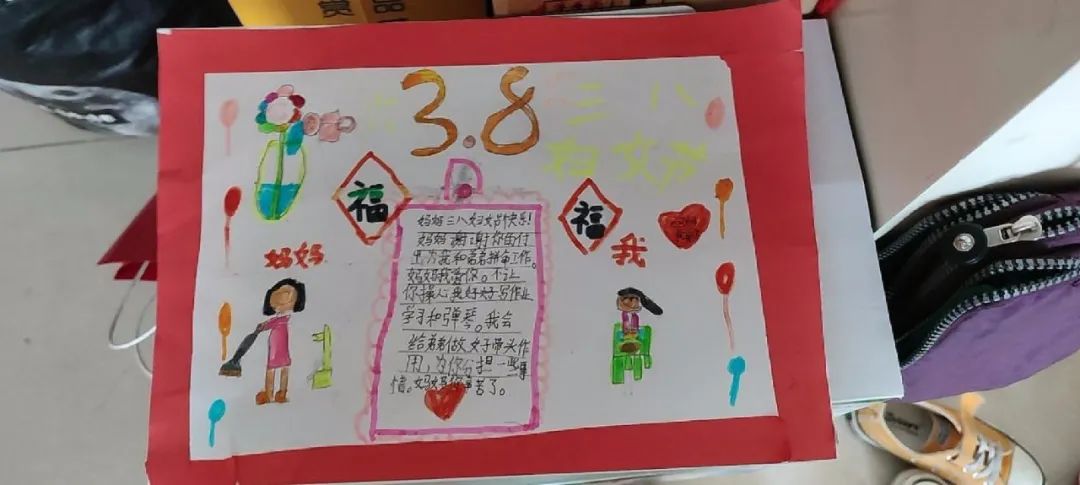 赏
品
3.8
三八
妇女节
福
福
妈妈
我
妈妈三八妇女节快乐!
妈妈谢谢你每付
出为我和弟弟拼命工作。
妈妈我爱你。不让
你操心我好好写作业
学习和弹琴。我会
给弟弟做好带头作
用,为你分担一些事
情。妈妈你辛苦了。